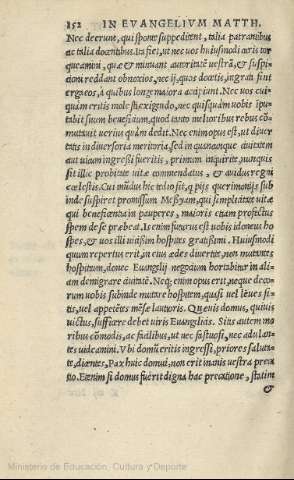 152 IN EVANGELIVM MATTH.
Nec deerunt, qui sponte suppeditent, talia patrantibus
ac talia docentibus. Ita fiet, ut nec vos huiusmodi curis tor
queamini, quæ & minuant autoritatẽ vestrã, & suspi
cioni reddant obnoxios, nec ij, quos docetis, ingrati sint
ergà eos, à quibus longe maiora accipiunt. Nec vos cui
quàm eritis molesti exigendo, nec quisquàm vobis ipu
tabit suum beneficium, quod tanto melioribus rebus cõ
mutavit verius quàm dedit. Nec enim opus est, ut diver
tatis in diversoria meritoria, sed in quancunque civitatem
aut vicum ingressi fueritis, primum inquirite, nunquis
sit illic probitate vitæ commendatus, & avidus regni
cœlestis. Cui mũdus hic vilis sit, & pijs querimonijs sub
inde suspiret promissum Meßyam, qui simplicitate vitæ
qui beneficentia in pauperes, maioris etiam profectus
spem de se præbeat. Is enim futurus est vobis idoneus ho
spes, & vos illi vicissim hospites gratissimi. Huiusmodi
quum repertus erit, in eius ædes divertite, non mutantes
hospitium, donec Euangelij negocium hortabitur in ali-
am demigrare civitatẽ. Neque enim opus erit, neque deco
rum vobis subinde mutare hospitem, quasi vel leves si-
tis, vel appetẽtes mẽsæ lautioris. Quævis domus, quivis
victus, sufficere debet viris Euangelicis. Sitis autem mo
ribus cõmodis, ac facilibus, ut nec fastuosi, nec adulan-
tes videamini. Vbi domũ eritis ingressi, priores saluta-
te, dicentes, Pax huic domui, non erit inanis vestra preca
tio. Etenim si domus fuerit digna hac precatione, statim
&
Ministerio de Educación, Cultura y Deporte